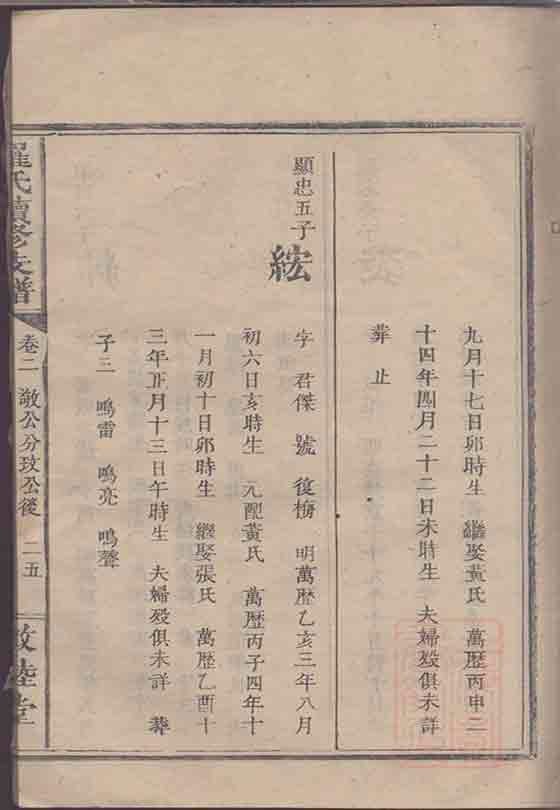 九月十七日卯時生 繼娶黃氏 萬歷丙申二
十四年四月二十二日未時生 夫婦殁俱未詳
葬止
顯忠五子
紘
字君傑 號復梅 明萬歷乙亥三年八月
初六日亥時生 元配黃氏 萬歷丙子四年十
一月初十日卯時生 繼娶張氏 萬歷乙酉十
三年正月十三日午時生 夫婦殁俱未詳 葬
子三 鳴雷 鳴亮 鳴聲
羅氏續修支譜
卷二 敞公分玟公後 二五
敦睦堂